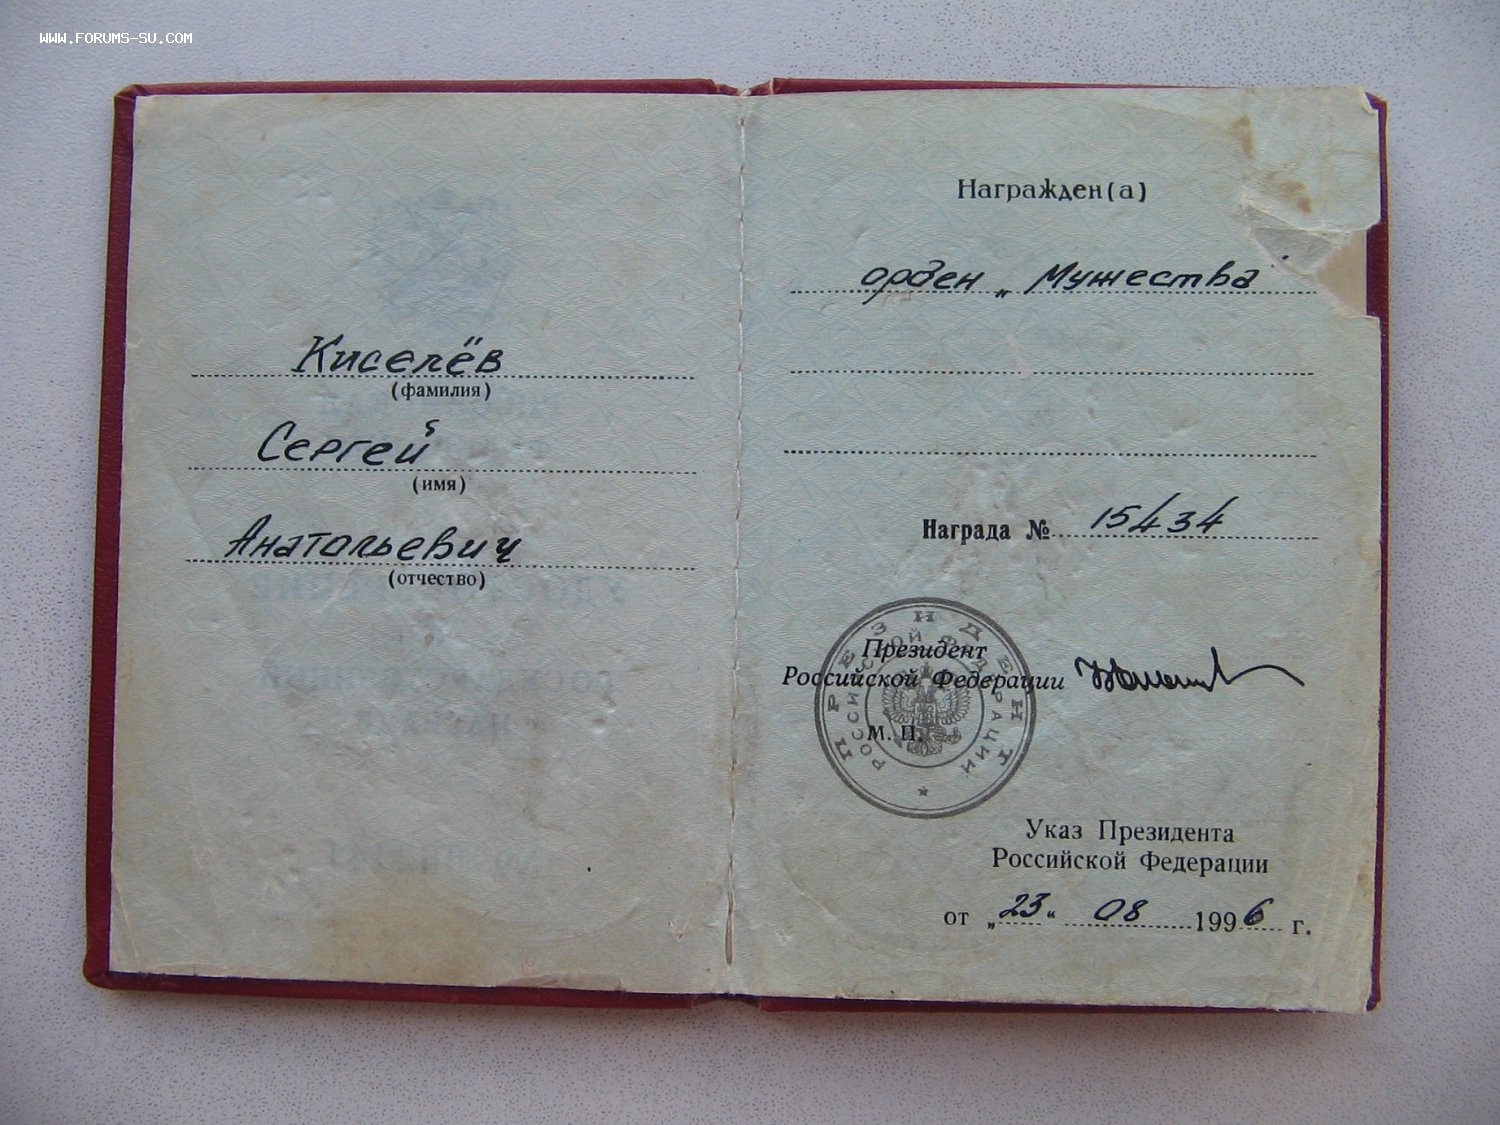 WWW.FORUMS-SU.COM
Киселёв
(фамилия)
Сергей
(имя)
Анатольевич
(отчество)
Награжден(а)
орден „Мужества"
Награда № 15434
Президент
Российской Федерации
М. П.
ПРЕЗИДЕНТ
РОССИЙСКОЙ ФЕДЕРАЦИИ
Указ Президента
Российской Федерации
от „23“ 08 1996 г.